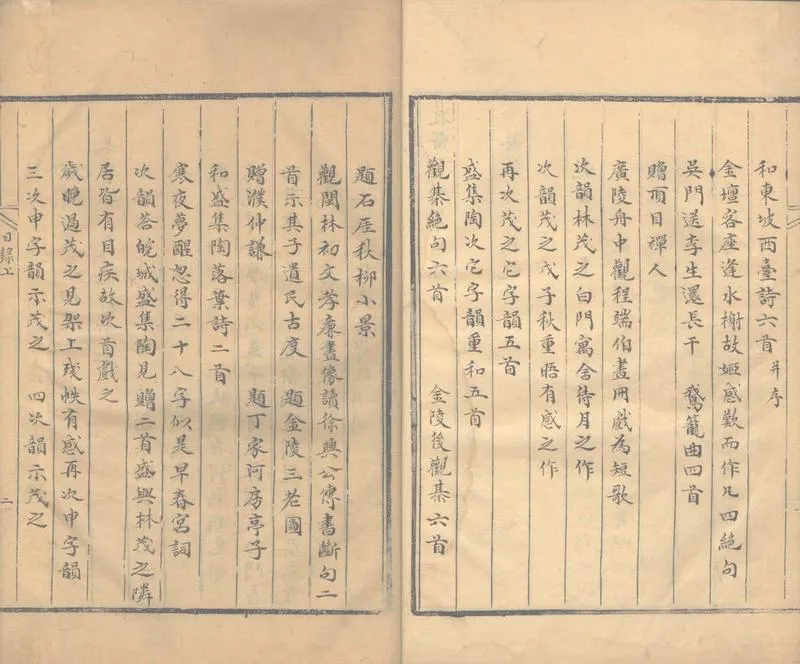 和東坡西臺詩六首 并序
金壇客座逢水榭故姬感歎而作凡四絶句
吳門送李生還長干 鵞籠曲四首
贈頂目禪人
廣陵舟中觀程端伯畫冊戲為短歌
次韻林茂之白門寓舍待月之作
次韻茂之戊子秋重晤有感之作
再次茂之它字韻五首
盛集陶次它字韻重和五首
觀棊絶句六首 金陵後觀棊六首
題石厓秋柳小景
觀閩林初文孝廉畫像讀徐興公傳書斷句二
首示其子遺民古度 題金陵三老圖
贈濮仲謙 題丁家河房亭子
和盛集陶落葉詩二首
寒夜夢醒忽得二十八字似是早春宮詞
次韻荅皖城盛集陶見贈二首盛與林茂之隣
居皆有目疾故次首戲之
歲晚過茂之見架上殘帙有感再次申字韻
三次申字韻示茂之 四次韻示茂之
目錄上
二